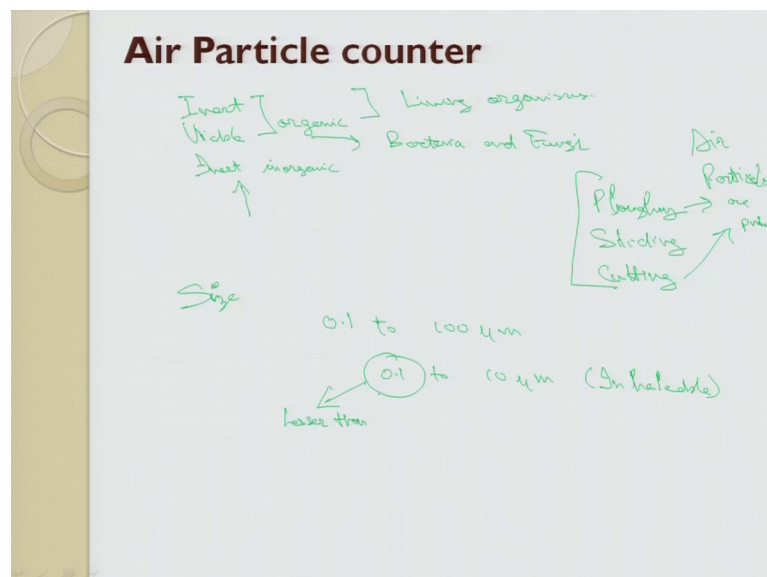 Air Particle counter
Inert
Viable
organic
Living organisms.
Bacteria and Fungi
Inert inorganic
Air
Particles
are
Ploughing
Sliding
Cutting
Size
0.1 to 100 μm
0.1 to 10 μm (Inhaleable)
Lesser than